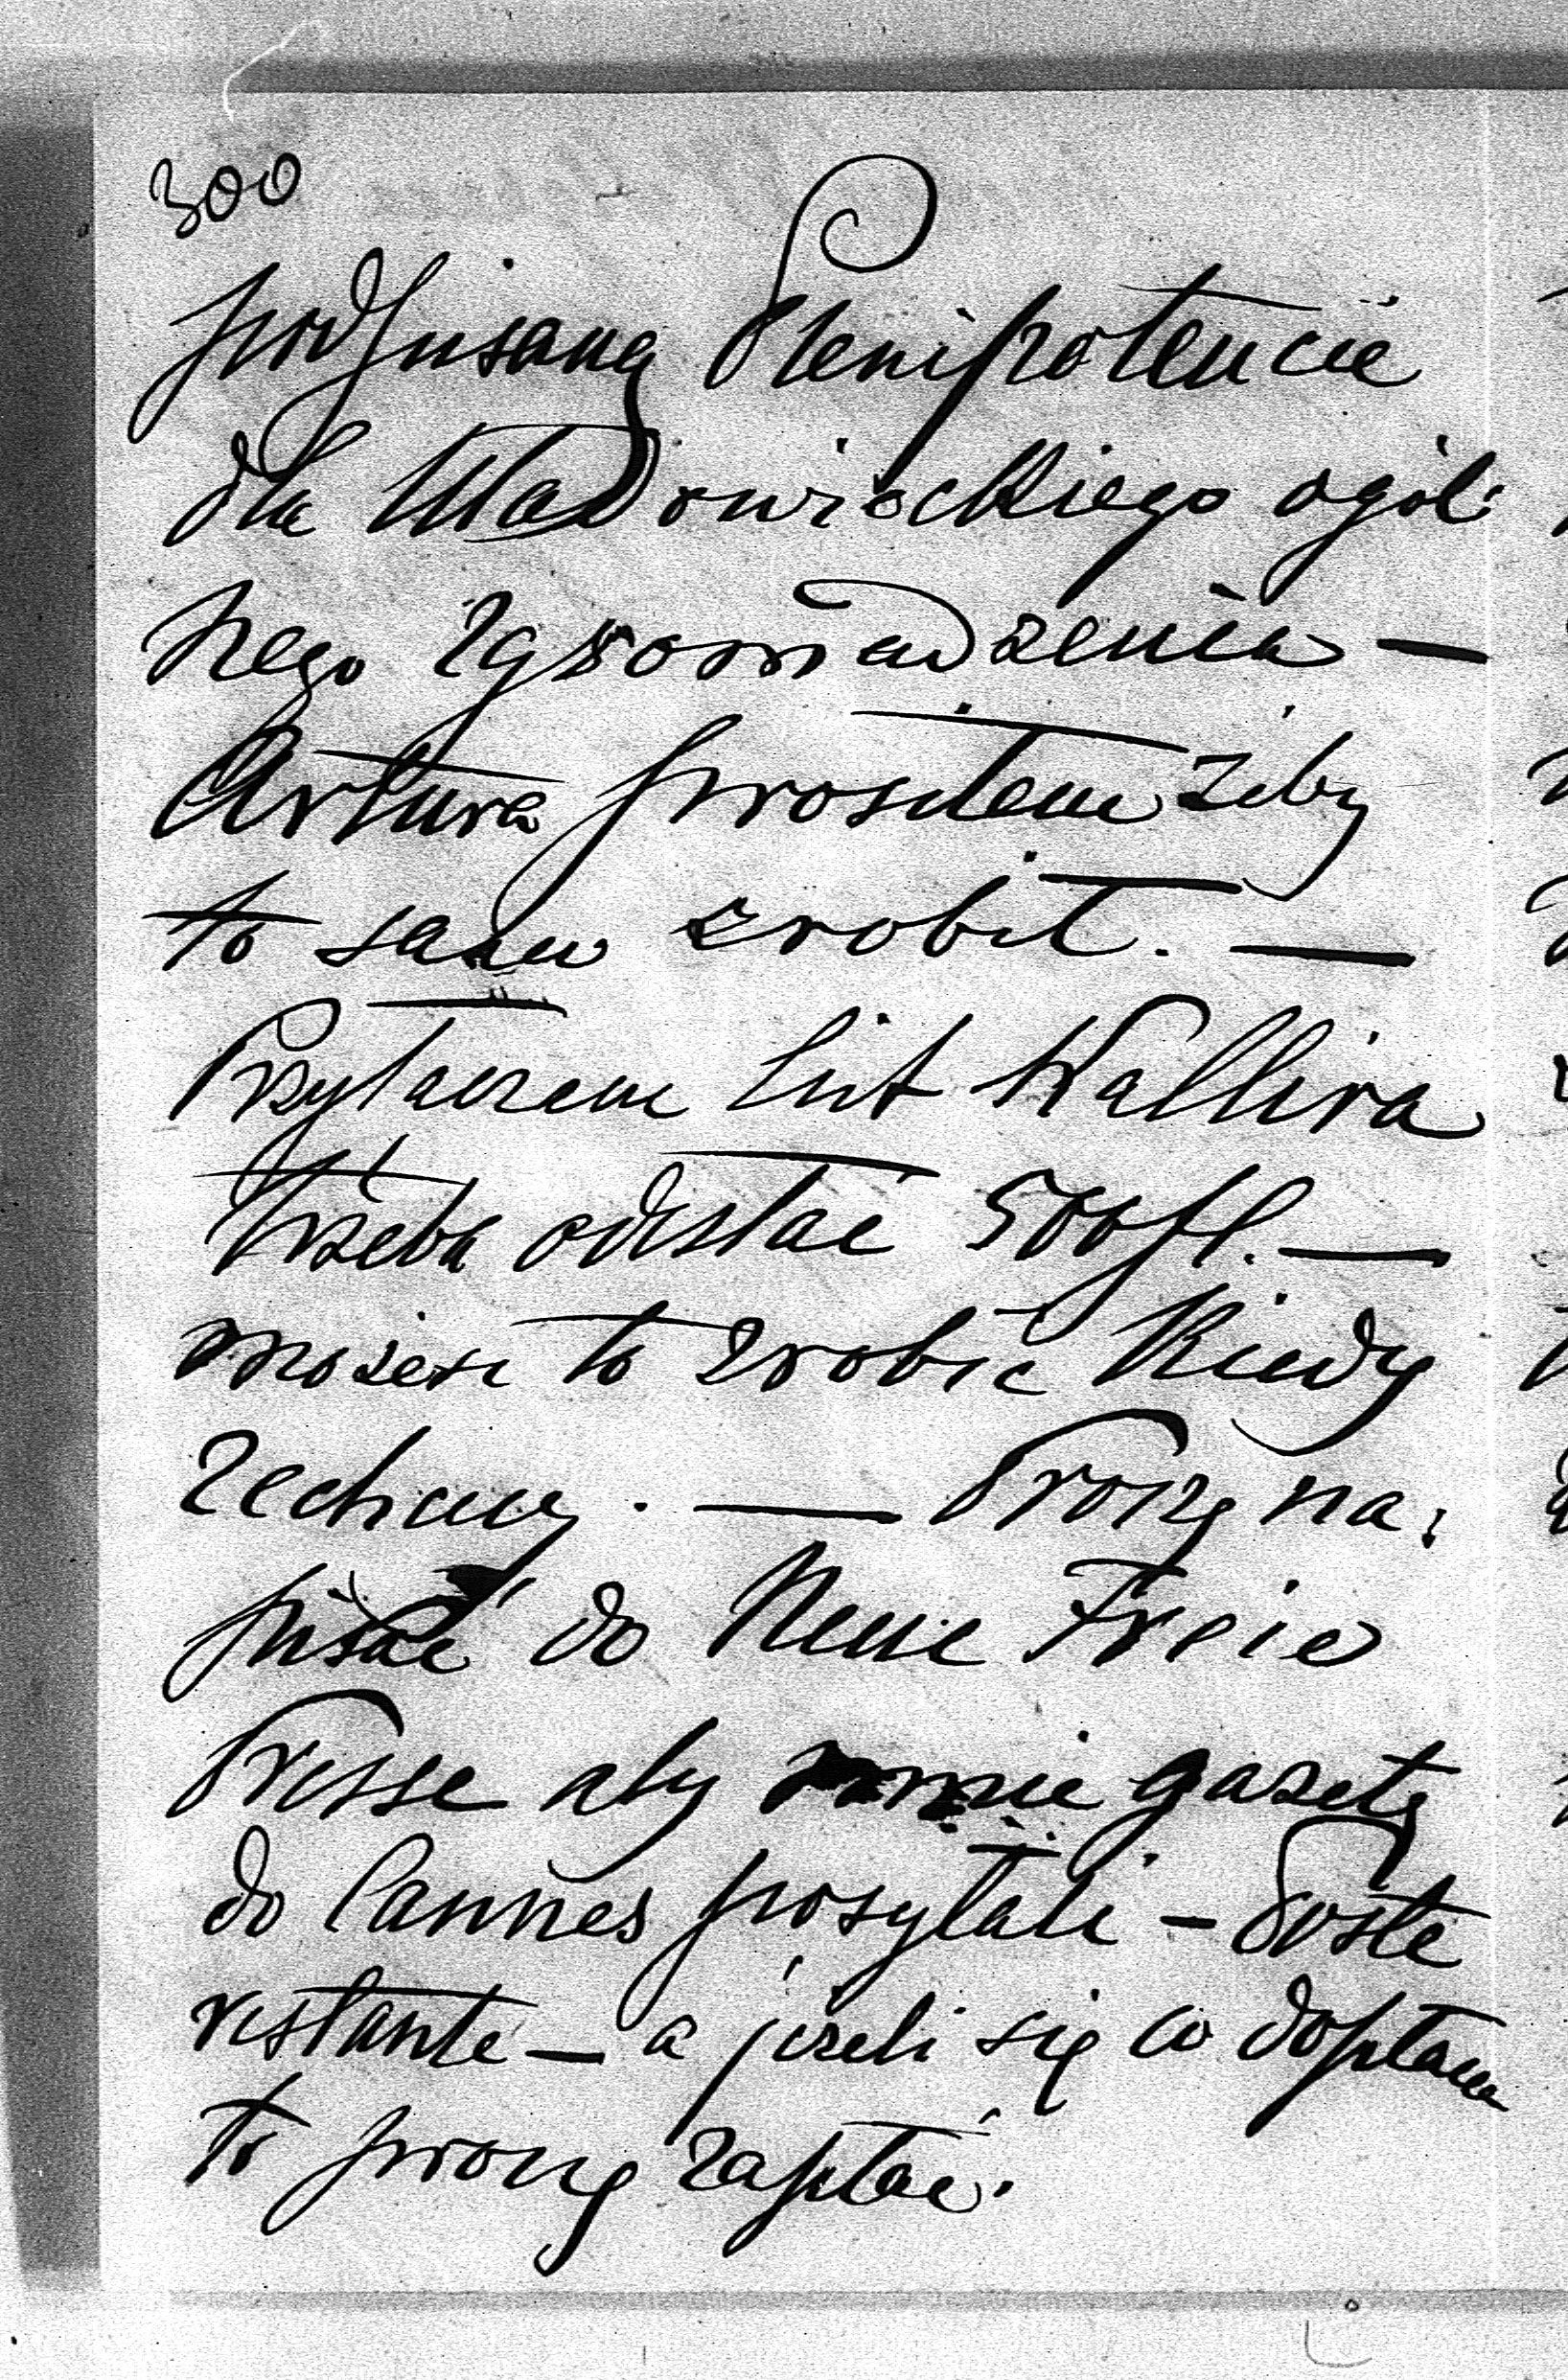 300
podpisaną Plenipotencie
dla Władowieckiego ogól:
nego zgromadzenia —
Artura prosiłem żeby
to samo zrobił. —
Przyłanczam list Wallira
trzeba odesłać 500 fl. —
możesz to zrobić Kiedy
zechcesz. — Proszę na:
pisać do Neue Freie
Presse aby mnie gazetę
do Cannes posyłali — Poste
restante — a jeżeli się co dopłaca
to proszę zapłać.